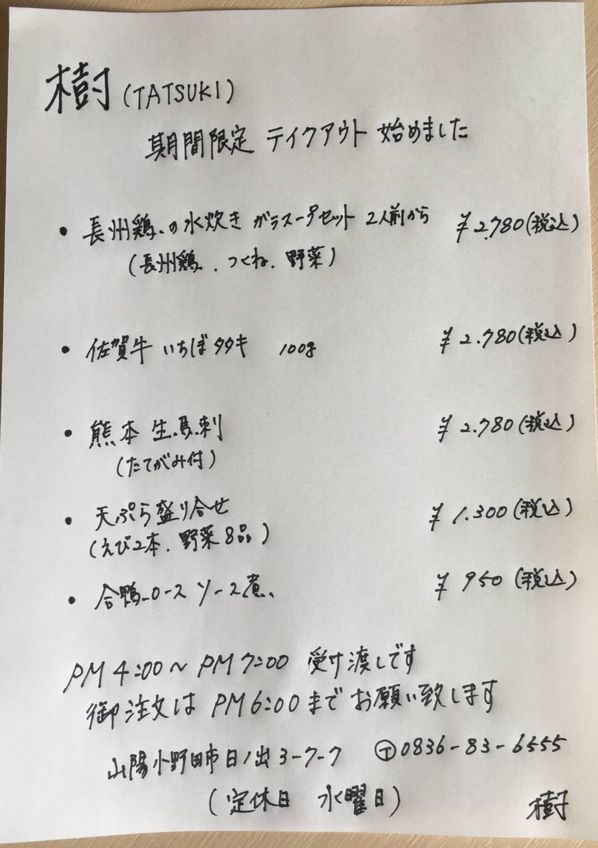 樹 (TATSUKI)
期間限定 テイクアウト 始めました
• 長州鶏の水炊き ガラスープセット 2人前から ¥2.780(税込)
(長州鶏、つくね、野菜)
• 佐賀牛 いちぼタタキ 100g ¥2.780(税込)
• 熊本 生馬刺 ¥2.780(税込)
(たてがみ付)
• 天ぷら盛り合せ ¥1.300(税込)
(えび2本、野菜8品)
• 合鴨ロース ソース煮 ¥950(税込)
PM4:00〜PM7:00 受け渡しです
御注文は PM6:00まで お願い致します
山陽小野田市日ノ出3-7-7 Ⓣ0836-83-6555
(定休日 水曜日)
樹